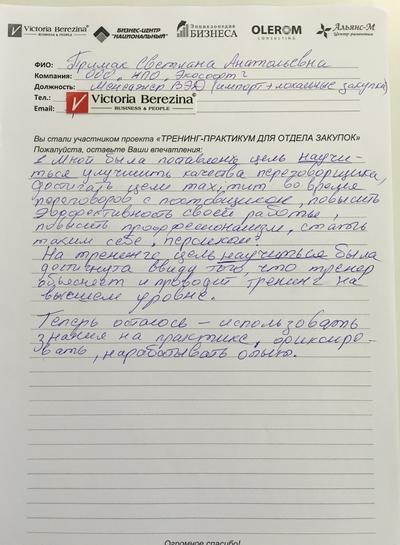 Victoria Berezina
BUSINESS & PEOPLE
БИЗНЕС-ЦЕНТР
"НАЦИОНАЛЬНЫЙ"
Энциклопедия
БИЗНЕСА
OLEROM
CONSULTING
Альянс-М
Центр развития
ФИО: Примак Светлана Анатольевна
Компания: ООО, НПО, Экософт"
Должность: Менеджер ВЭД (импорт+локальные закупки)
Тел.:
Email:
Victoria Berezina
BUSINESS & PEOPLE
Вы стали участником проекта «ТРЕНИНГ-ПРАКТИКУМ ДЛЯ ОТДЕЛА ЗАКУПОК»
Пожалуйста, оставьте Ваши впечатления:
Мной была поставлена цель научи-
ться улучшить качества переговорщика,
достигать цели max, min во время
переговоров с поставщиком, повысить
эффективность своей работы,
повысить профессионализм, стать
таким себе, перцем"
На тренинге цель научиться была
достигнута ввиду того, что тренер
объясняет и проводит тренинг на
высшем уровне.
Теперь осталось – использовать
знания на практике, фиксиро-
вать, нарабатывать опыт.
Огромное спасибо!